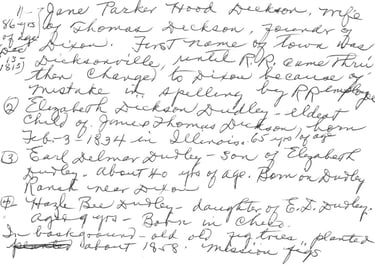 11-7 Jane Parker Hood Dickson, wife
86 yrs of age by Thomas Dickson, founder of
Dec Dixon. First name of town was
13-1813 Dicksonville, until R.R. came thru
then changed to Dixon because of
mistake in spelling by RR employe
② Elizabeth Dickson Dudley - eldest
child of Jane & Thomas Dickson, born
Feb. - 3 - 1834 in Illinois. 65 yrs of age
③ Earl Delmar Dudley - son of Elizabeth
Dudley - about 40 yrs of age. Born on Dudley
Ranch near Dixon
④ Hazle Bee Dudley - daughter of E.D. Dudley.
Aged 9 yrs - Born in Chils.
In background - old old fig trees, planted
planted about 1858. Mission figs